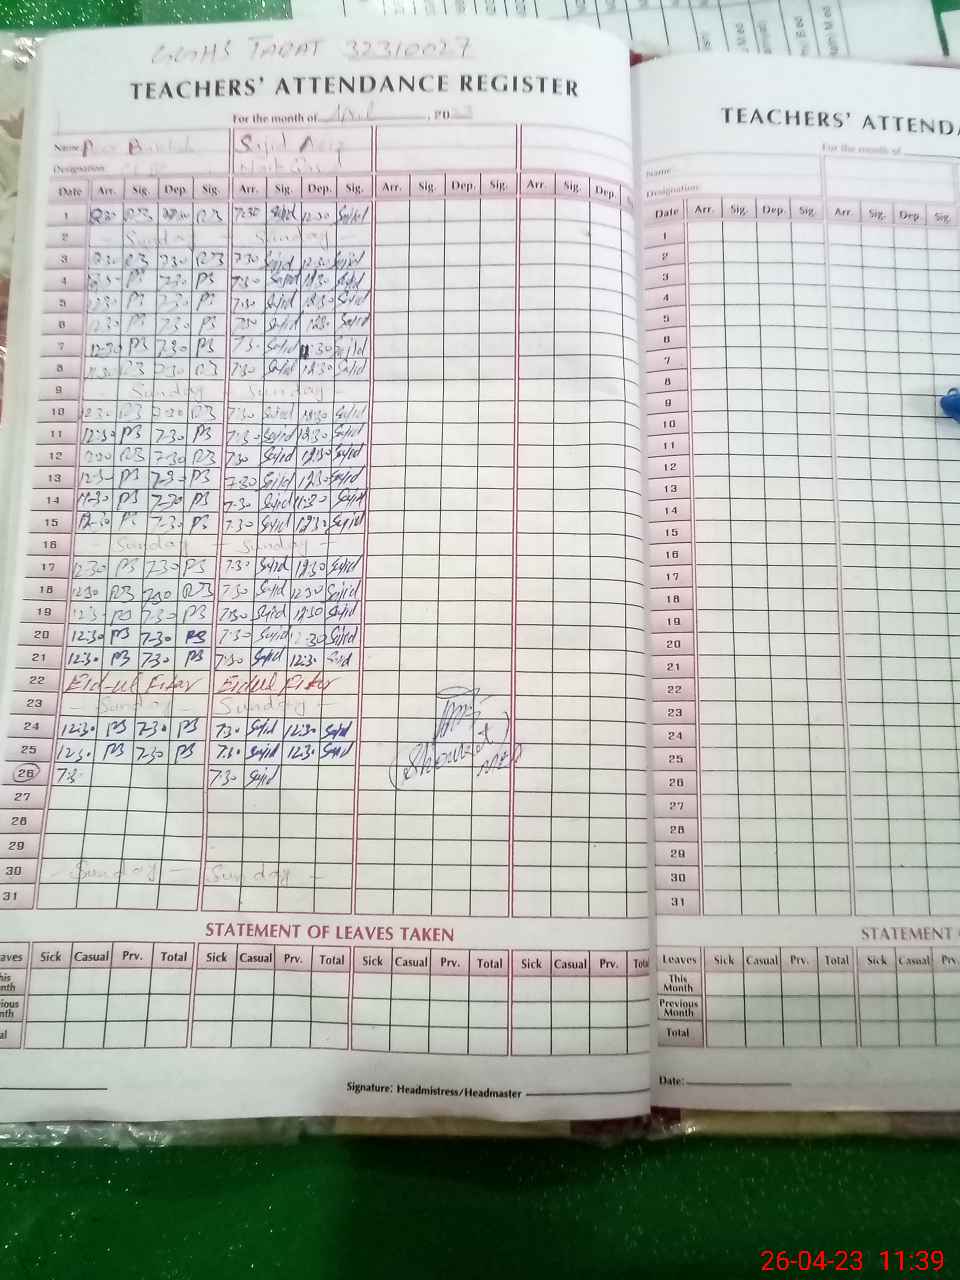 GGHS TARAT 32310027
TEACHERS' ATTENDANCE REGISTER
For the month of April, PD 23
Name: Sajid
Designation:
Date Arr. Sig. Dep. Sig. Arr. Sig. Dep. Sig. Arr. Sig. Dep. Sig. Arr. Sig. Dep.
1 7:30 Sajid 12:30 Sajid
2 - Sunday - Sunday -
3 7:30 PB 7:30 Sajid 12:30 Sajid
4 PB 7:30 PB 7:30 Sajid 12:30 Sajid
5 12:30 PB 7:30 PB 7:30 Sajid 12:30 Sajid
6 12:30 PB 7:30 PB 7:30 Sajid 12:30 Sajid
7 12:30 PB 7:30 PB 7:30 Sajid 11:30 Sajid
8 PB 7:30 PB 7:30 Sajid 12:30 Sajid
9 - Sunday - Sunday -
10 12:30 PB 7:30 PB 7:30 Sajid 12:30 Sajid
11 12:30 PB 7:30 PB 7:30 Sajid 12:30 Sajid
12 PB 7:30 PB 7:30 Sajid 12:30 Sajid
13 12:30 PB 7:30 PB 7:30 Sajid 12:30 Sajid
14 11:30 PB 7:30 PB 7:30 Sajid 11:30 Sajid
15 12:30 PB 7:30 PB 7:30 Sajid 12:30 Sajid
16 - Sunday - Sunday -
17 12:30 PB 7:30 PB 7:30 Sajid 12:30 Sajid
18 12:30 PB 7:30 PB 7:30 Sajid 12:30 Sajid
19 12:30 PB 7:30 PB 7:30 Sajid 12:30 Sajid
20 12:30 PB 7:30 PB 7:30 Sajid 12:30 Sajid
21 12:30 PB 7:30 PB 7:30 Sajid 12:30 Sajid
22 Eid-ul Fitar Eidul Fitar
23 - Sunday - Sunday -
24 12:30 PB 7:30 PB 7:30 Sajid 12:30 Sajid
25 12:30 PB 7:30 PB 7:30 Sajid 12:30 Sajid
26 7:30 7:30 Sajid
27
28
29
30 - Sunday - Sunday -
31
STATEMENT OF LEAVES TAKEN
Sick Casual Prv. Total Sick Casual Prv. Total Sick Casual Prv. Total Sick Casual Prv.
Signature: Headmistress/Headmaster
TEACHERS' ATTENDA
For the month of
Name:
Designation:
Date Arr. Sig. Dep. Sig. Arr. Sig. Dep. Sig.
1
2
3
4
5
6
7
8
9
10
11
12
13
14
15
16
17
18
19
20
21
22
23
24
25
26
27
28
29
30
31
STATEMENT
Leaves Sick Casual Prv. Total Sick Casual Prv.
This Month
Previous Month
Total
Date:
26-04-23 11:39